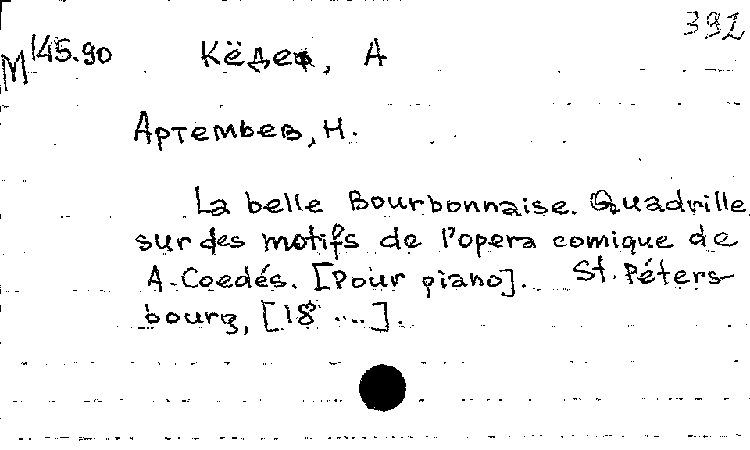 392
М145.90 Кёдес, А
Артемьев, Н.
La belle Bourbonnaise. Quadrille
sur des motifs de l'opera comique de
A. Coedés. [Pour piano]. St. Péters-
bourg, [18 ...].